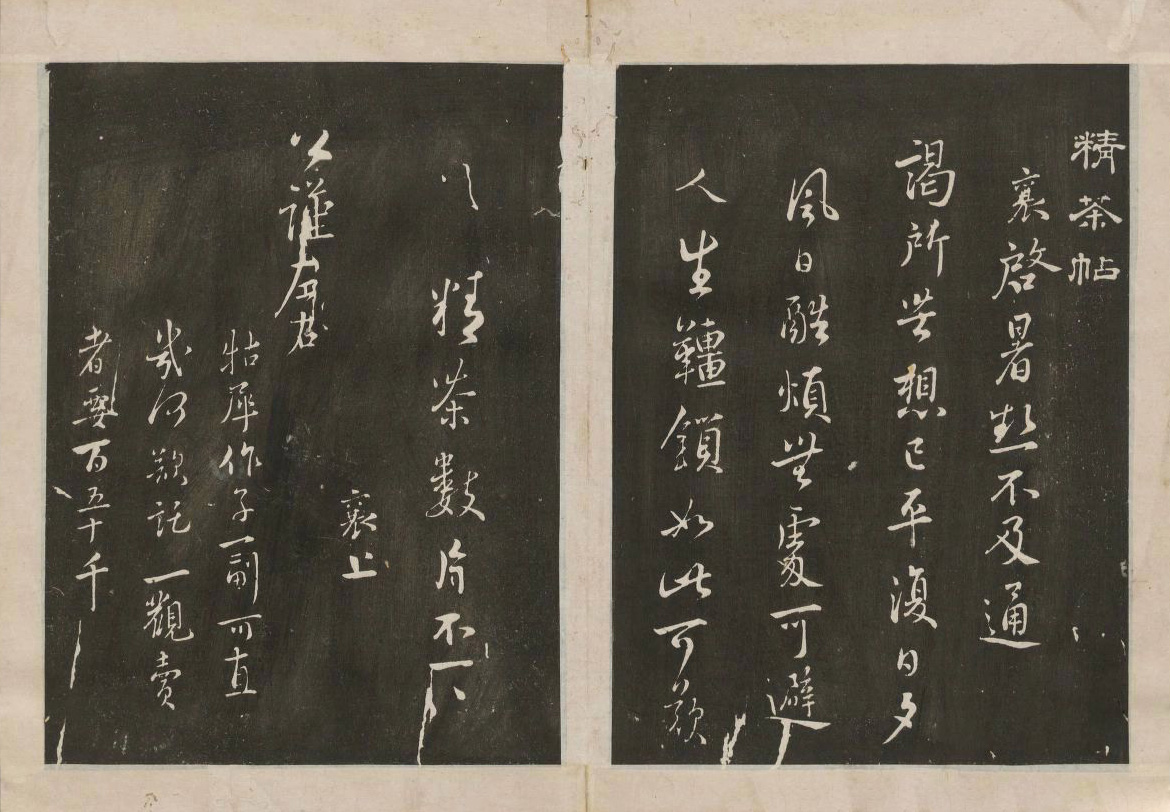 精茶帖
襄啓暑熱不及通
謁所苦想已平復日夕
風日酷煩無處可避
人生韁鎖如此可歎
〻精茶數片不一〻
襄上
公謹左右
牯犀作子一副可直
幾何欲託一觀賣
者要百五十千